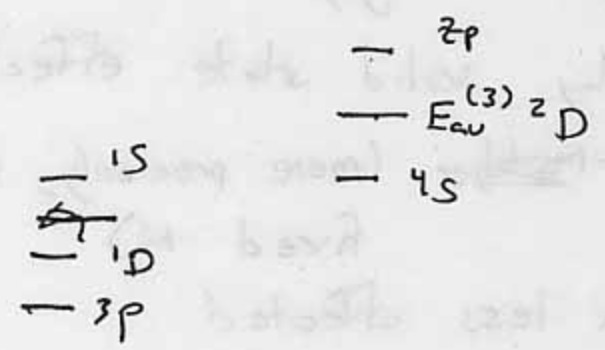 ²P
E_av^(3) ²D
¹S
⁴S
¹D
³P